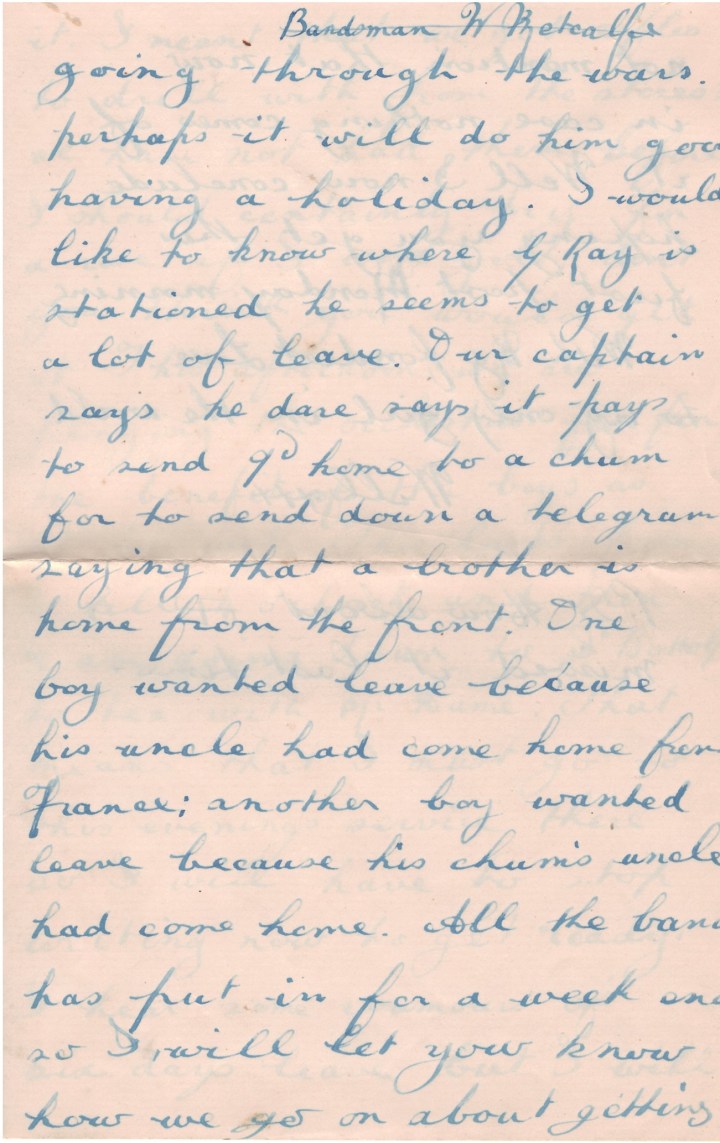 Bandsman W Metcalfe
going through the wars.
perhaps it will do him goo
having a holiday. I would
like to know where G Ray is
stationed he seems to get
a lot of leave. Our captain
says he dare says it pays
to send 9d home to a chum
for to send down a telegram
saying that a brother is
home from the front. One
boy wanted leave because
his uncle had come home from
France; another boy wanted
leave because his chum's uncle
had come home. All the ban
has put in for a week en
so I will let you know
how we go on about getting